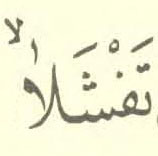 تَفْشَلَاۙ